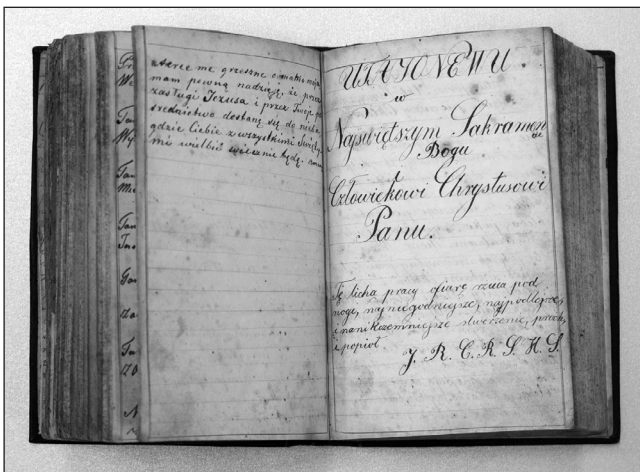 serce me grzeszne o matko moja
mam pewną nadzieję, że przez
zasługi Jezusa i przez Twoje po
srednictwo dostanę się do nieba
gdzie Ciebie z wszystkimi Święty
mi wielbić wiecznie będę.
UTAJONEMU
w
Najświętszym Sakramen
cie
Bogu
Człowiekowi Chrystusowi
Panu.
Tę licha pracy ofiarę rzuca pod
nogi, najniegodniejsze, najpodlejsze,
i nanikczemniejsze stworzenie, proch,
i popiół
J. R. C. R. S. H. S.